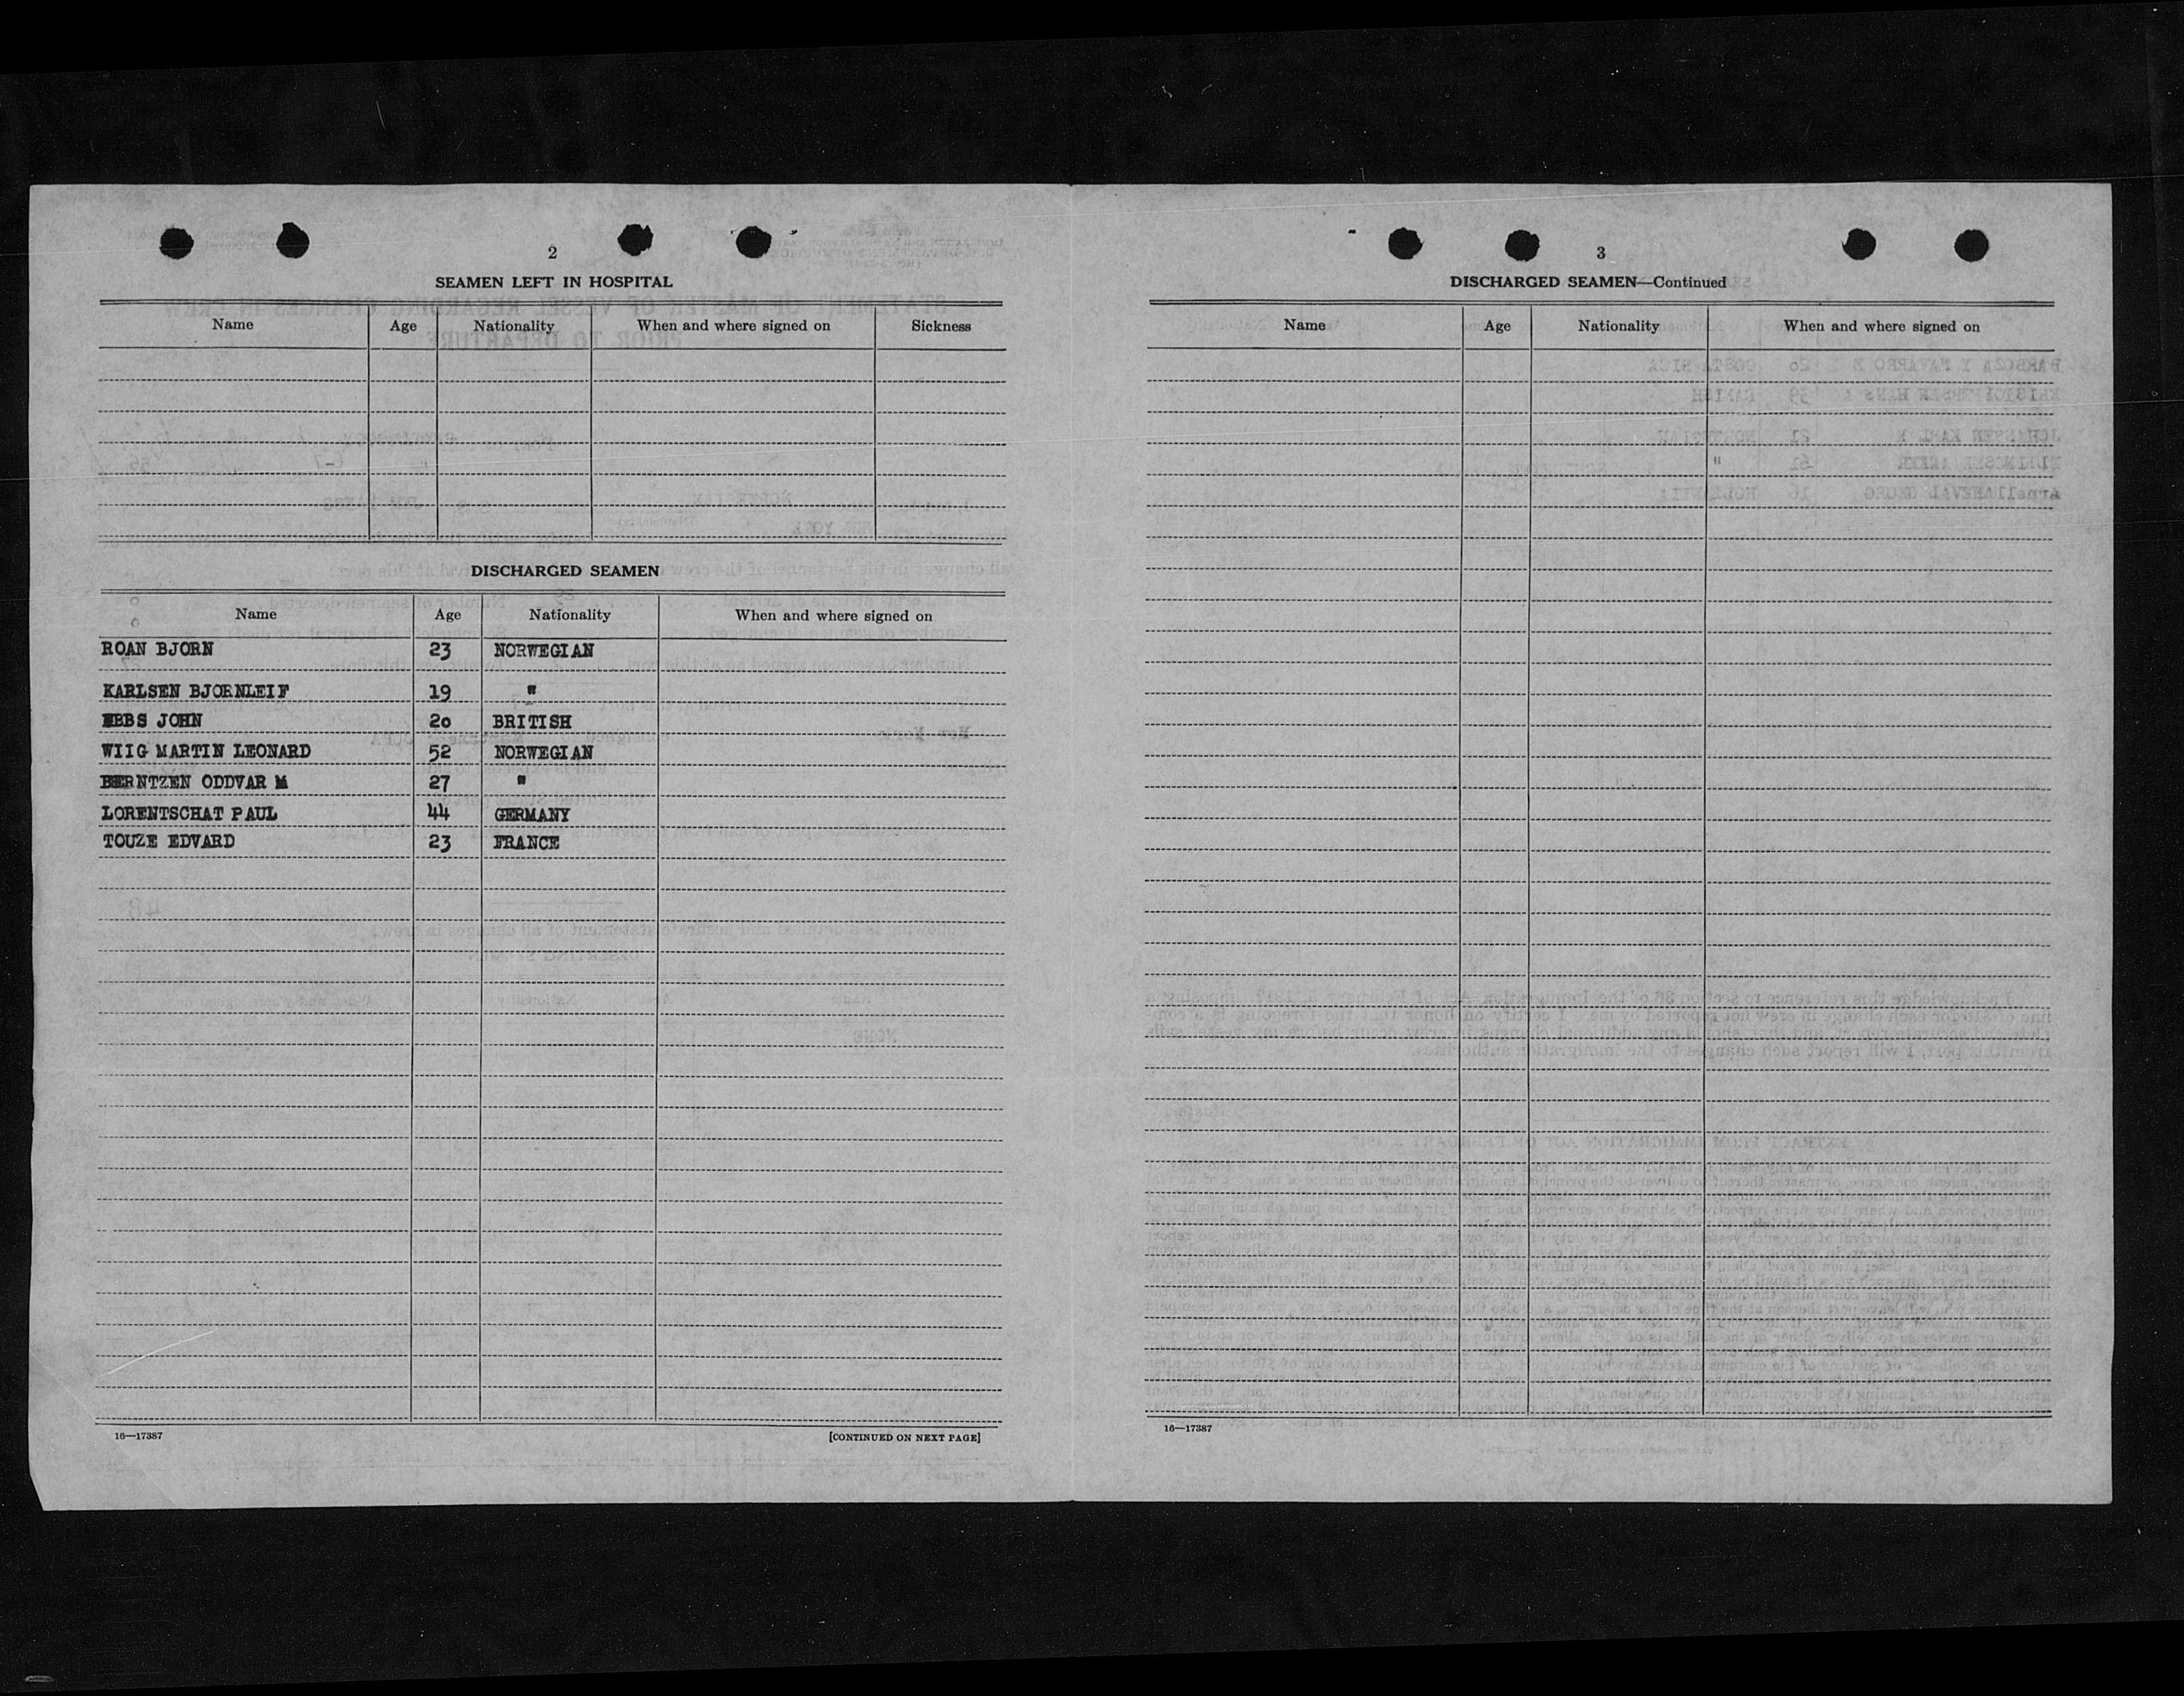 2
SEAMEN LEFT IN HOSPITAL
Name Age Nationality When and where signed on Sickness
DISCHARGED SEAMEN
Name Age Nationality When and where signed on
ROAN BJORN 23 NORWEGIAN
KARLSEN BJORNLEIF 19 "
EBBS JOHN 20 BRITISH
WIIG MARTIN LEONARD 52 NORWEGIAN
BERNTZEN ODDVAR M 27 "
LORENTSCHAT PAUL 44 GERMANY
TOUZE EDVARD 23 FRANCE
16—17387 [CONTINUED ON NEXT PAGE]
3
DISCHARGED SEAMEN—Continued
Name Age Nationality When and where signed on
16—17387